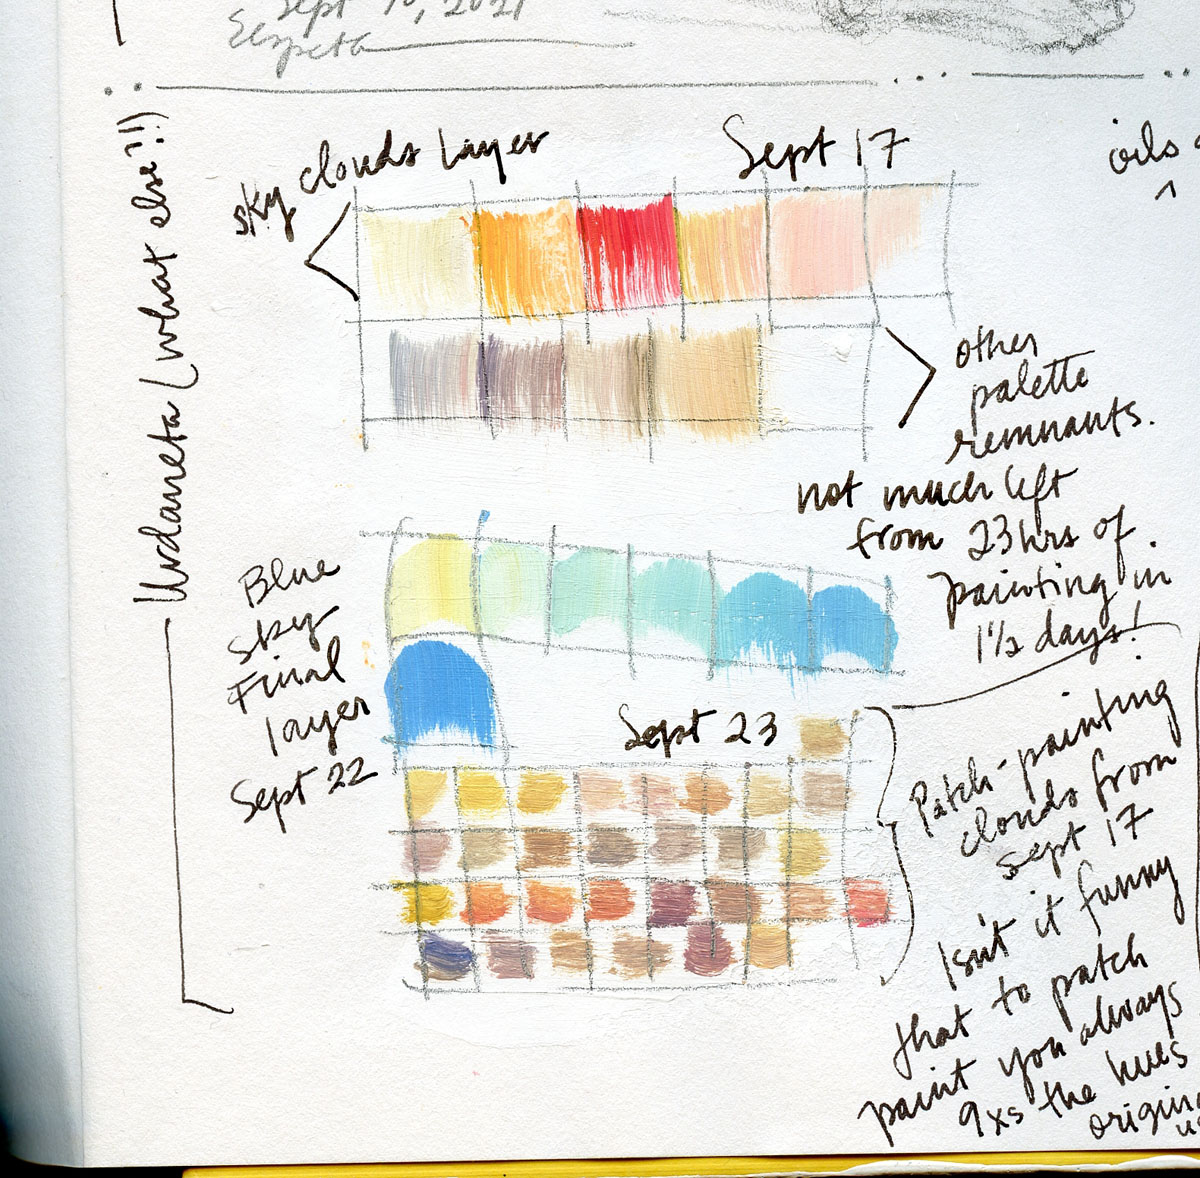 Sept 10, 2021
Urdaneta (what else?!!)
sky clouds layer
Sept 17
oils
^
other
palette
remnants.
not much left
from 23hrs of
painting in
1½ days!
Blue
sky
Final
layer
Sept 22
Sept 23
Patch-painting
clouds from
Sept 17
Isn't it funny
that to patch
paint you always
9xs the hues